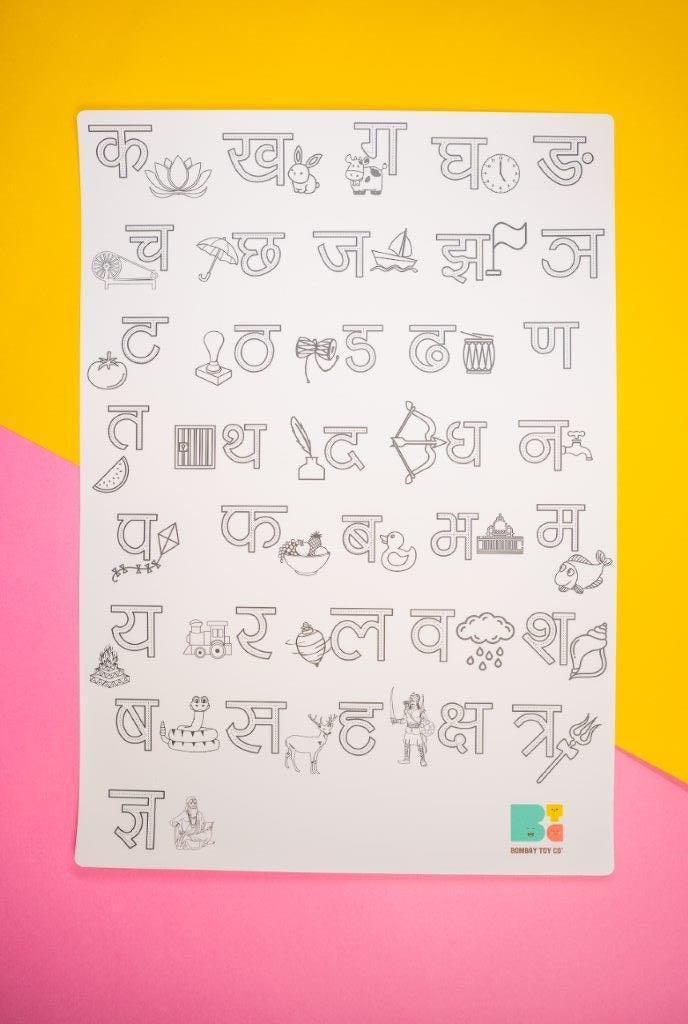 क ख ग घ ङ
च छ ज झ ञ
ट ठ ड ढ ण
त थ द ध न
प फ ब भ म
य र ल व श
ष स ह क्ष त्र
ज्ञ
BTC
BOMBAY TOY CO